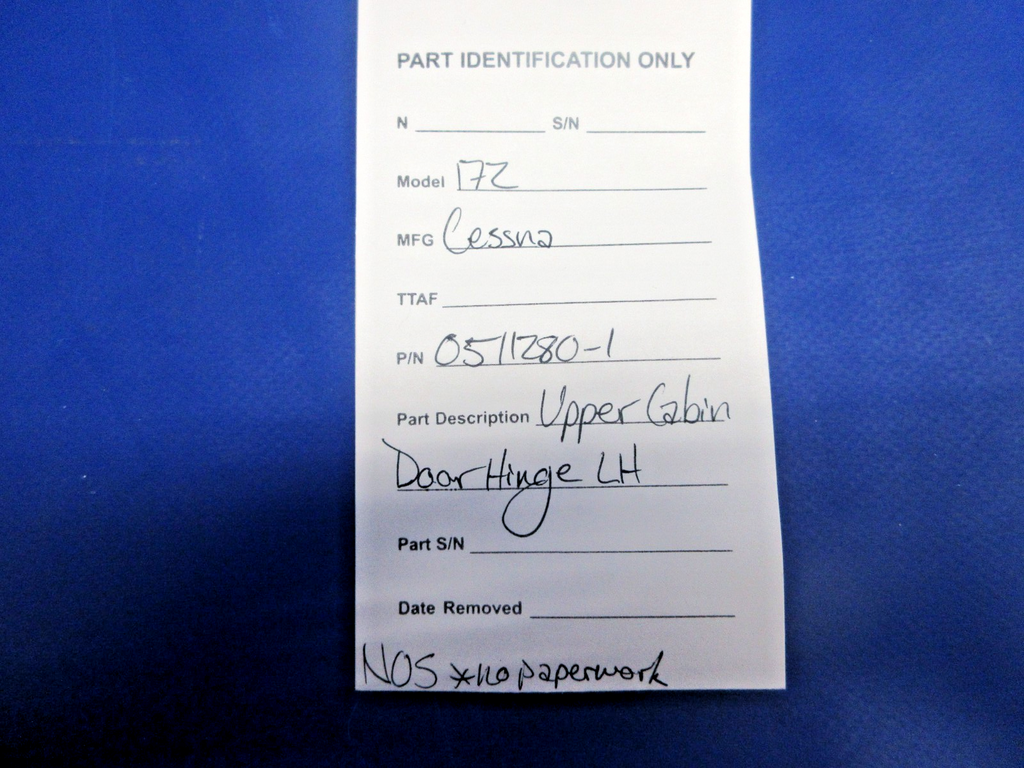 PART IDENTIFICATION ONLY
N S/N
Model 172
MFG Cessna
TTAF
P/N 0511280-1
Part Description Upper Cabin
Door Hinge LH
Part S/N
Date Removed
NOS *no paperwork